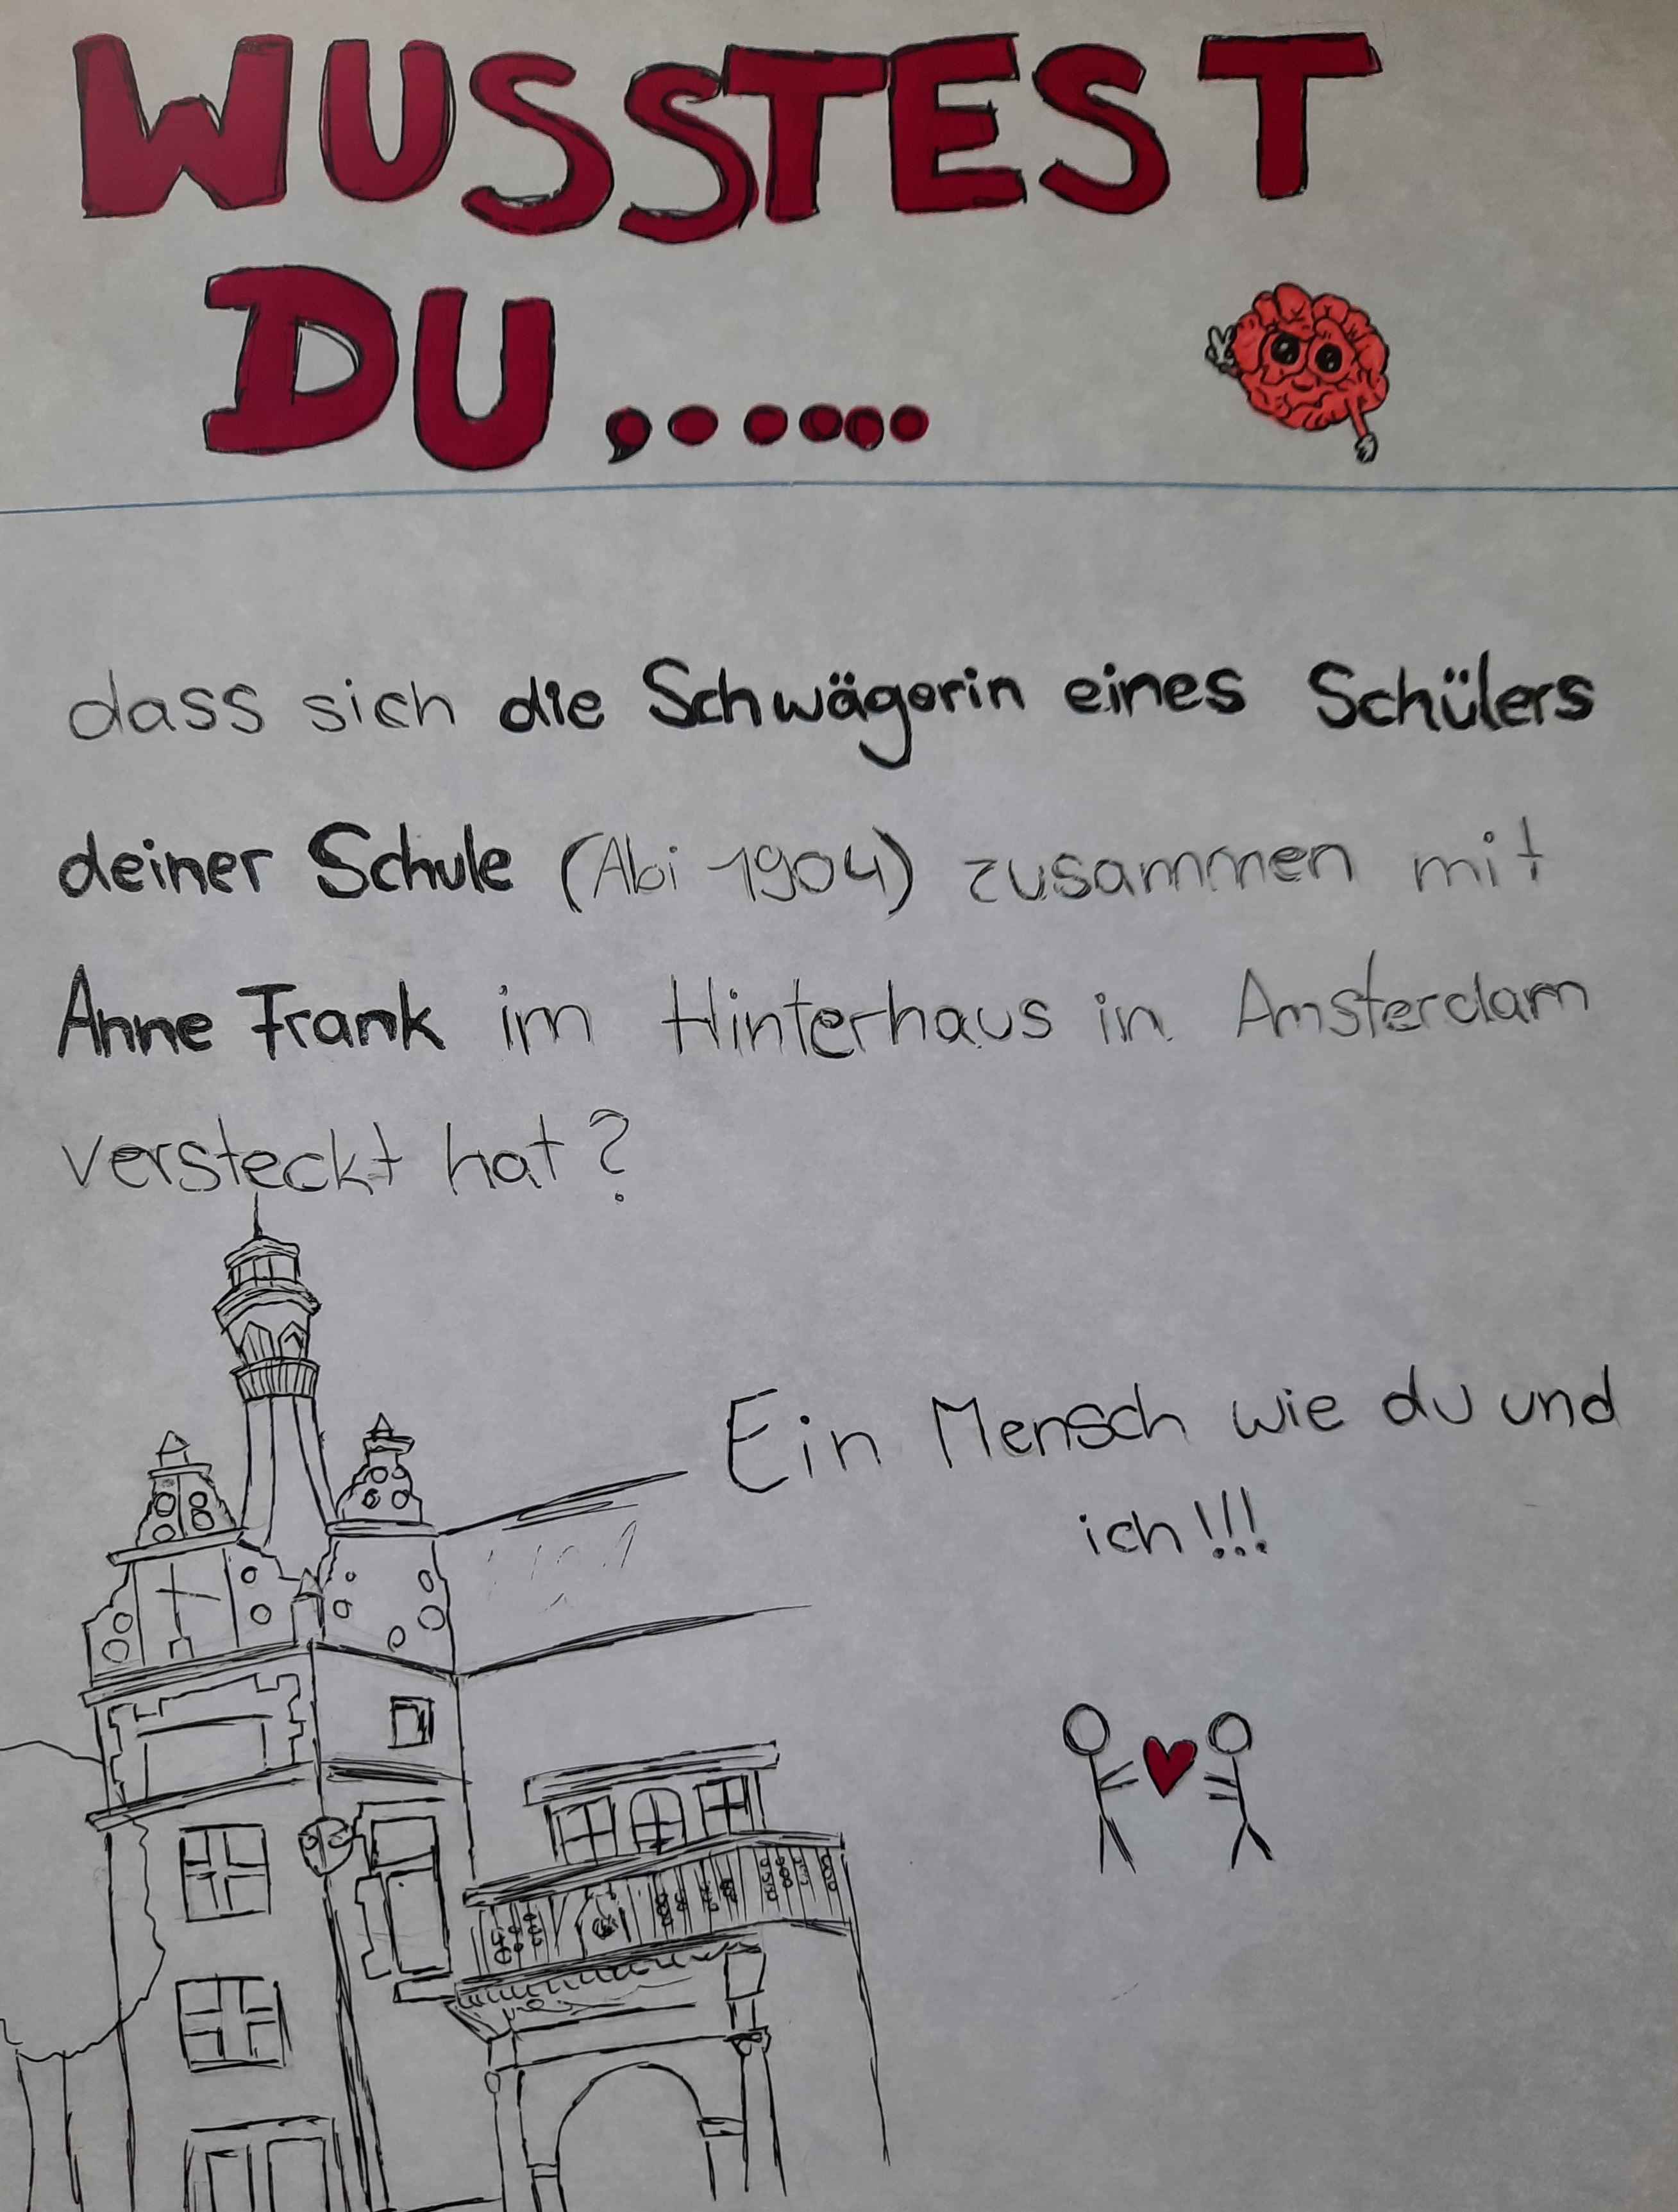 WUSSTEST
DU,.....
dass sich die Schwägerin eines Schülers
deiner Schule (Abi 1904) zusammen mit
Anne Frank im Hinterhaus in Amsterdam
versteckt hat?
Ein Mensch wie du und
ich!!!